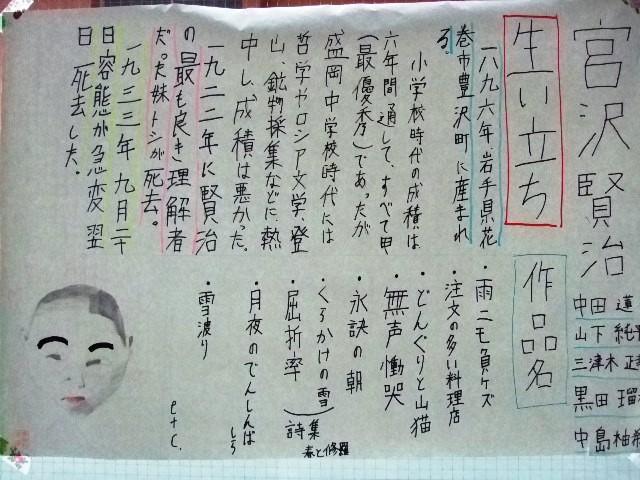 宮沢賢治
中田 蓮
山下 純
三津木 正
黒田 瑠
中島 柚
生い立ち
一八九六年、岩手県花
巻市豊沢町に産まれ
る。
小学校時代の成績は
六年間通して、すべて甲
(最優秀)であったが
盛岡中学校時代には
哲学やロシア文学、登
山、鉱物採集などに熱
中し、成積は悪かった。
一九二二年に賢治
の最も良き理解者
だった妹トシが死去。
一九三三年九月二十
日容態が急変、翌
日死去した。
作品名
・雨ニモ負ケズ
・注文の多い料理店
・どんぐりと山猫
・無声慟哭
・永訣の朝
・くらかけの雪
・屈折率
(詩集
春と修羅
・月夜のでんしんば
しら
・雪渡り
etc.